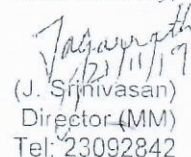 (J. Srinivasan)
Director (MM)
Tel: 23092842